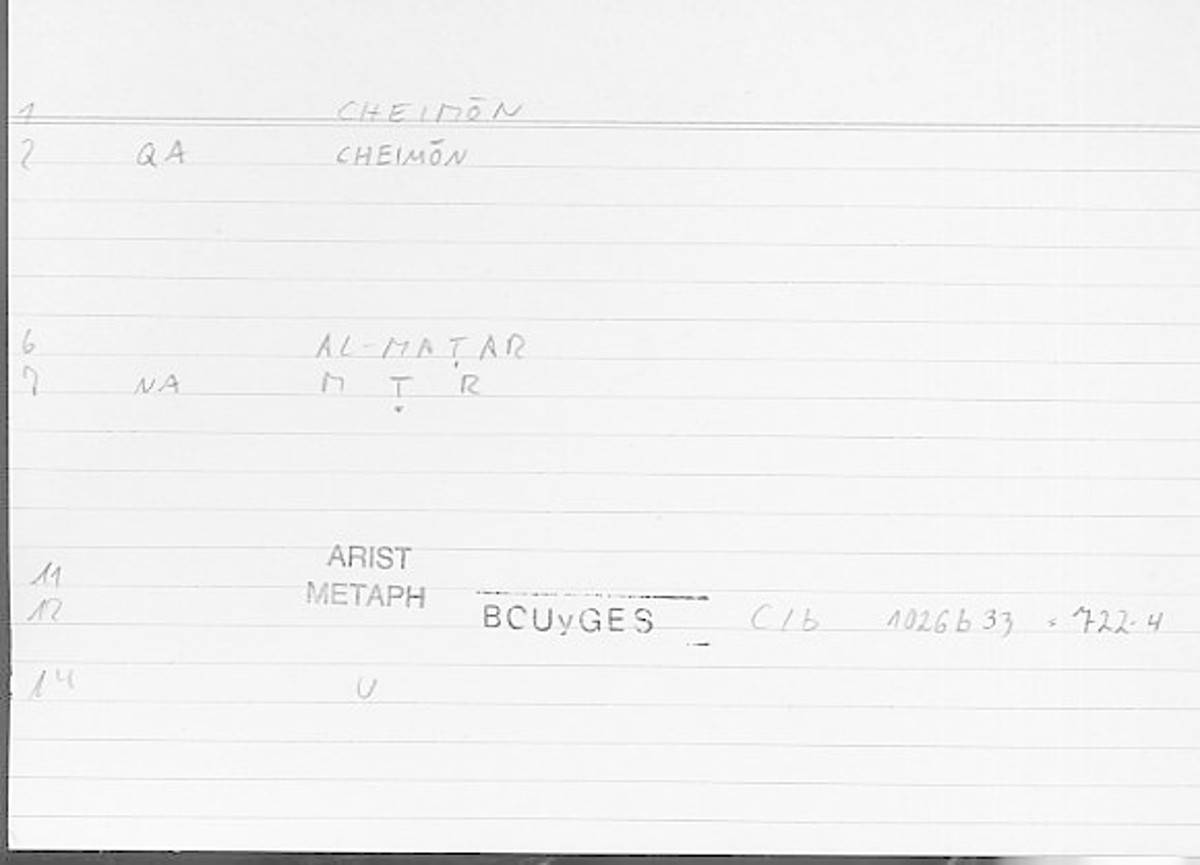 1 CHEIMŌN
2 QA CHEIMŌN
6 AL-MAṬAR
7 NA M Ṭ R
ARIST
11 METAPH
12 BCUyGES C1b 1026b33 = 722.4
14 U